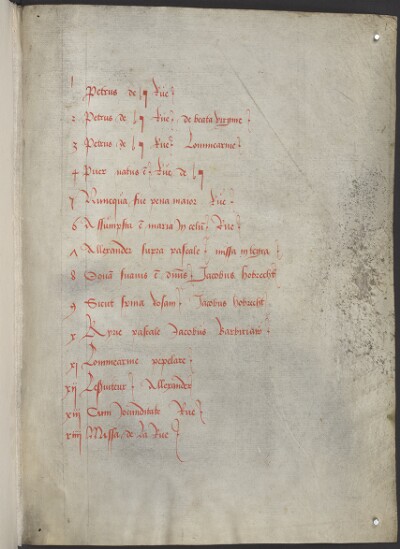 1 Petrus de la Rue
2 Petrus de la Rue de beata virgine
3 Petrus de la Rue Lommearme
4 Puer natus ē Rue de la
5 Nunequa fue pena maior Rue
6 Assumpta ē maria In celū Rue
7 Allexander supra pascale missa integra
8 Jacobus hobrecht
9 Sicut spina Rosam Jacobus hobrecht
x Kyrie pascale Jacobus Barbiriau
xi Lommearme pipelare
xii Lesuiteur Allexander
xiii Cum Jocunditate Rue
xiiii Missa de la Rue